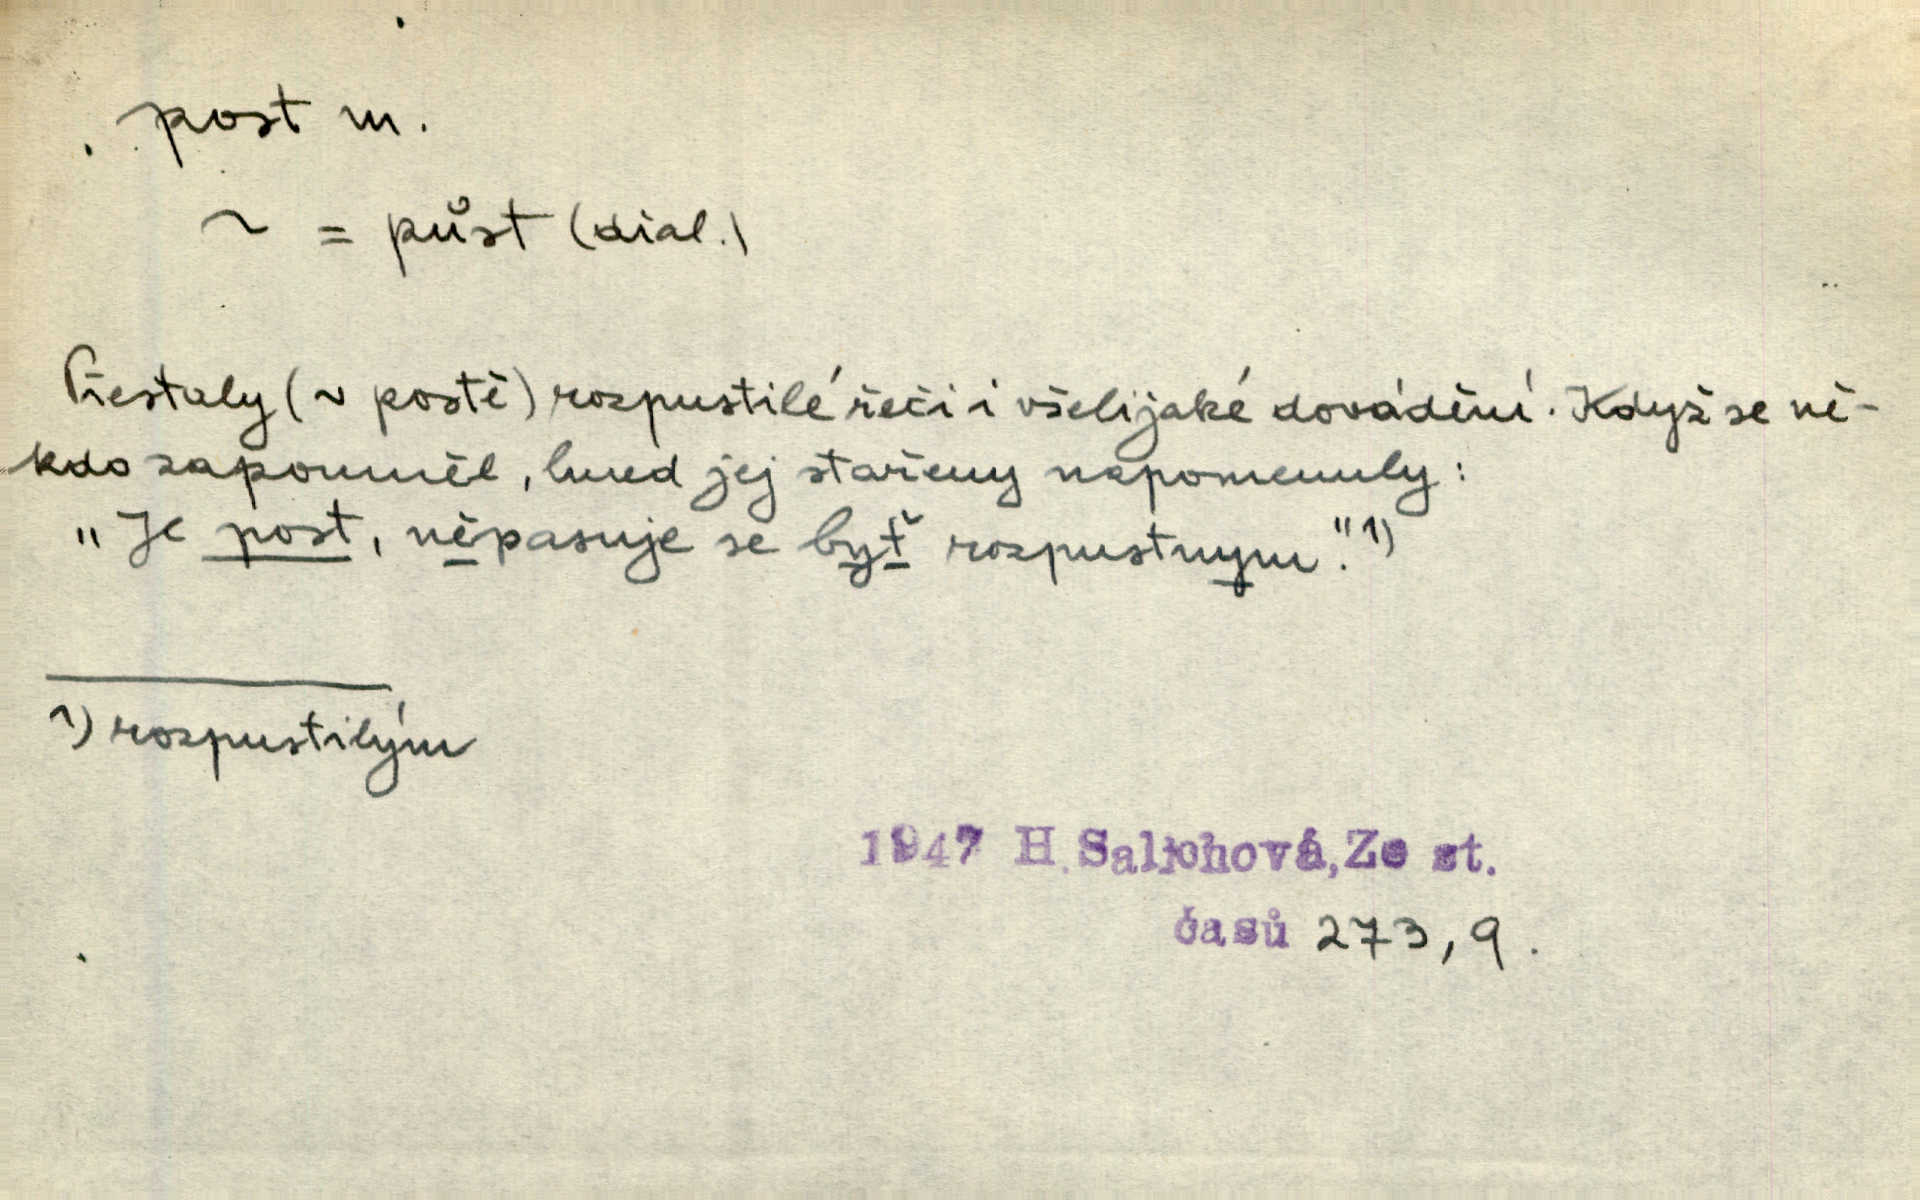 post m.
~ = půst (dial.)
Přestaly (v postě) rozpustilé řeči i všelijaké dovádění. Když se ně-
kdo zapomněl, hned jej stařeny napomenuly:
"Je post, něpasuje se byť rozpustnym." 1)
1) rozpustilým
1947 H. Salichová, Ze st.
časů 273, 9.